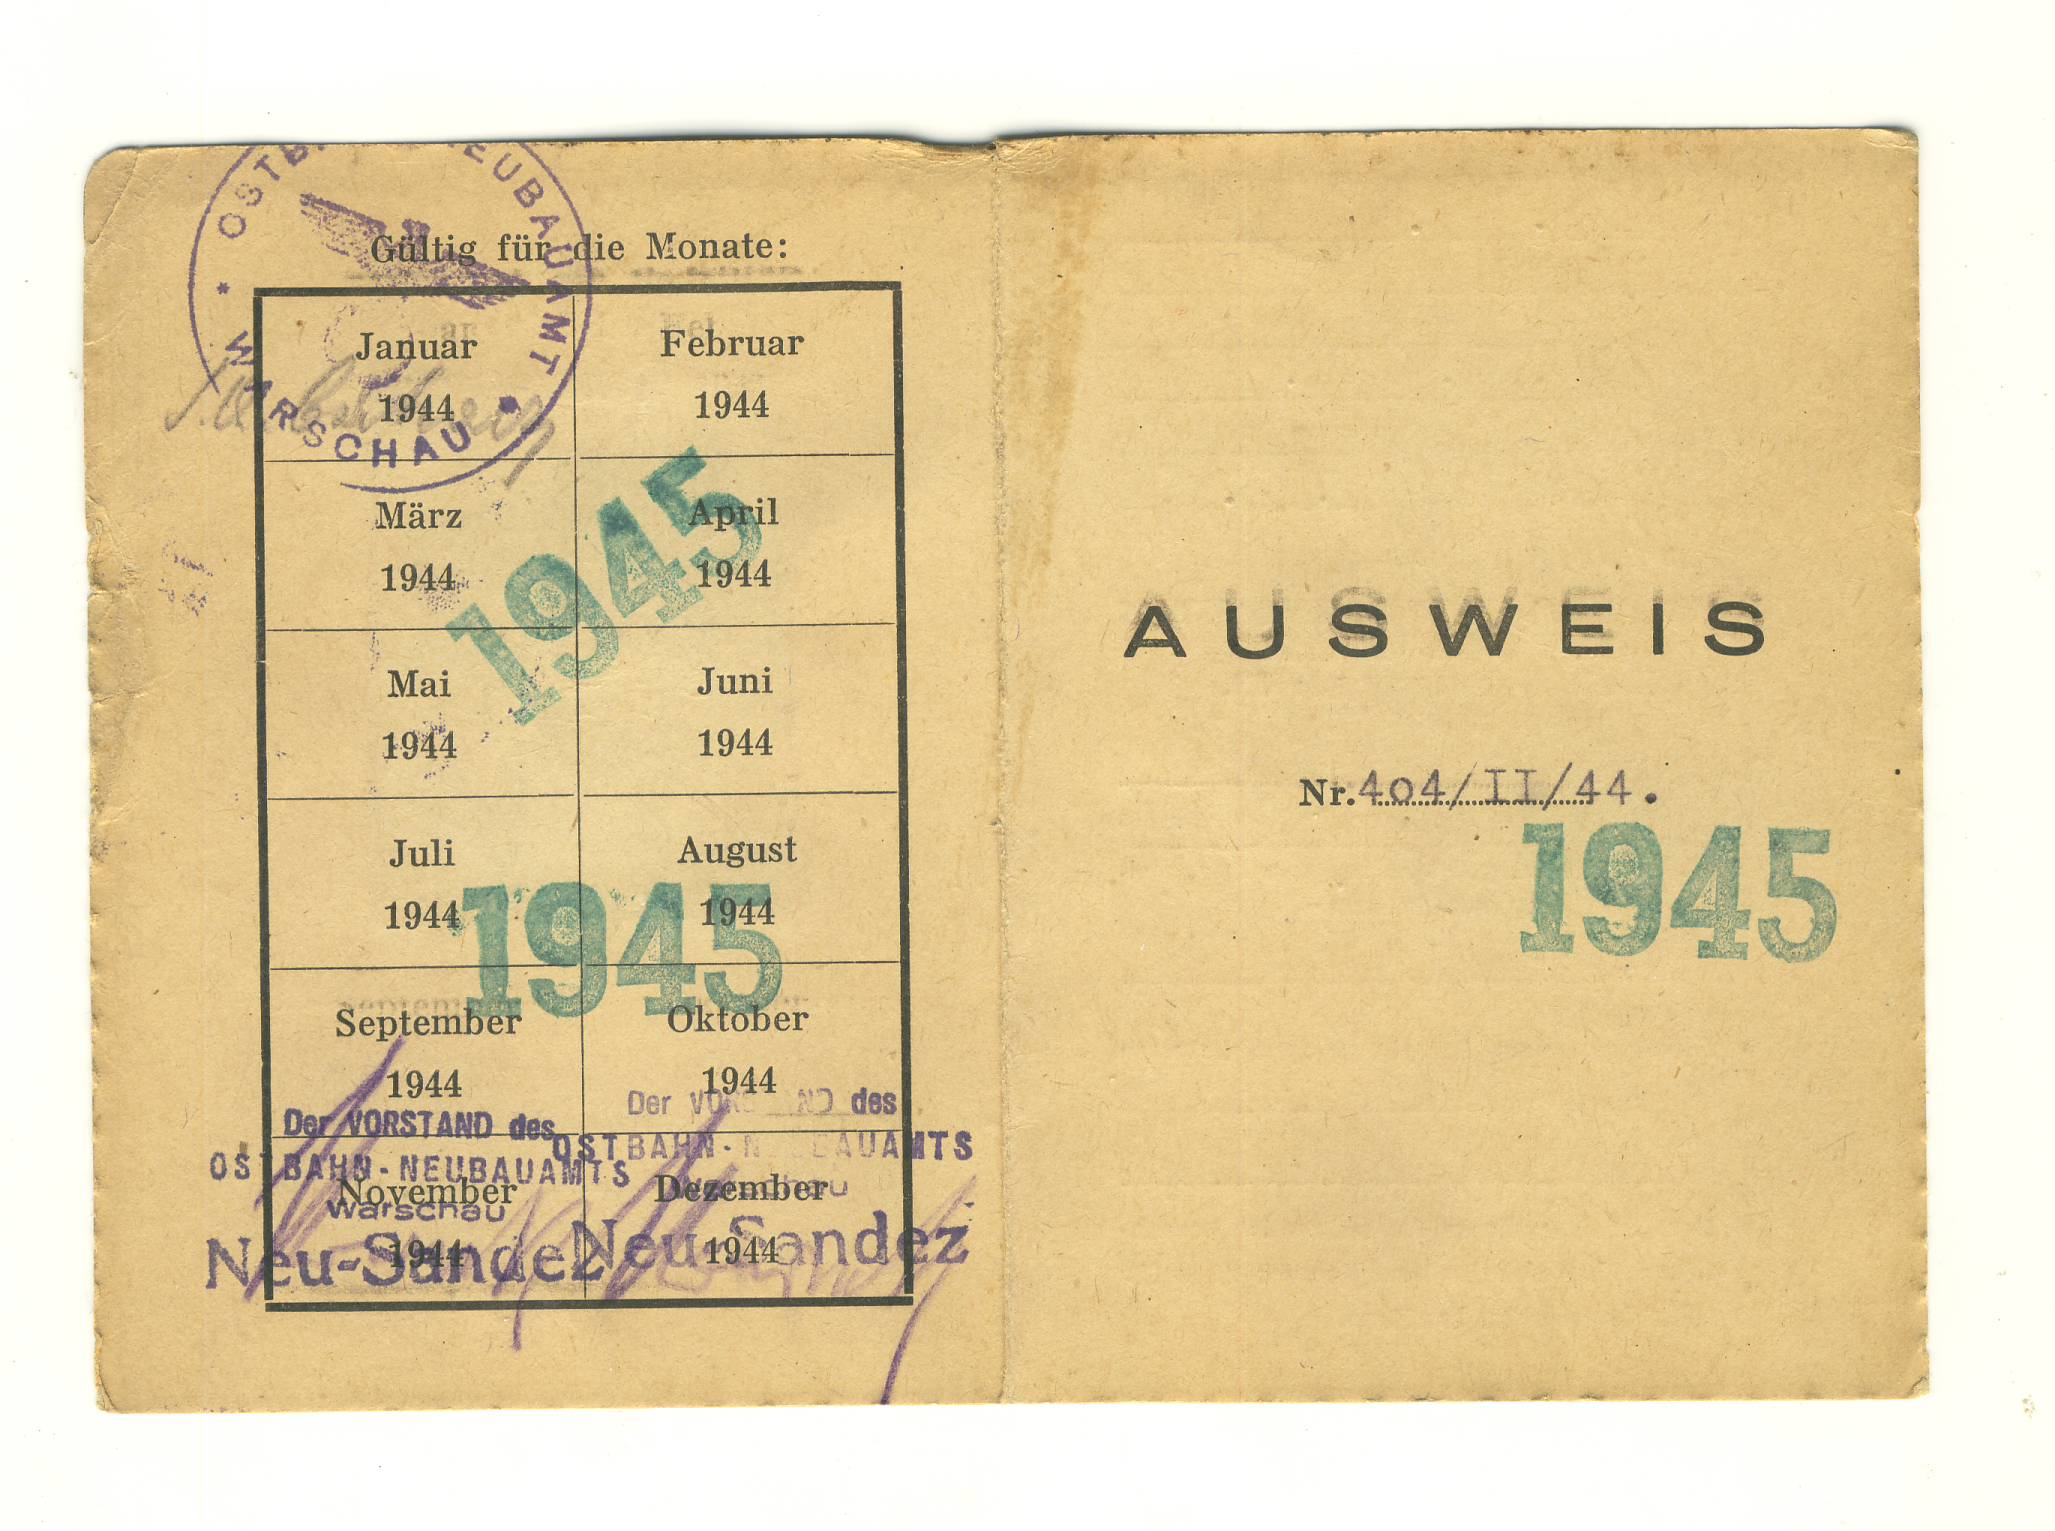 OSTB EUBAUAMT
* WARSCHAU
Gültig für die Monate:
Januar
1944
Februar
1944
März
1944
April
1944
1945
Mai
1944
Juni
1944
Juli
1944
August
1944
1945
September
1944
Oktober
1944
Der VORSTAND des
OSTBAHN-NEUBAUAMTS
Warschau
Neu-Sandez
Der VORSTAND des
OSTBAHN-NEUBAUAMTS
Warschau
Neu-Sandez
November
1944
Dezember
1944
AUSWEIS
Nr. 404/II/44.
1945